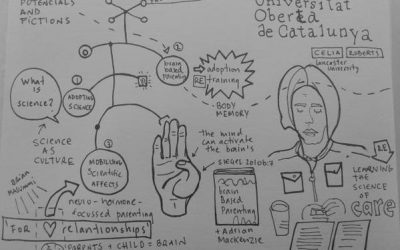 POTENCIALS
AND
FICTIONS
Universitat
Oberta
de Catalunya
CELIA ROBERTS
Lancaster
University
2
brain
based
Parenting
adoption
RE training
BODY
MEMORY
What
is
Science?
1
ADOPTING
SCIENCE
SCIENCE
AS
CULTURE
3
MOBILIZING
Scientific
AFFECTS
the mind
can activate
the brain's
SIEGEL 2010b:7
RE
LEARNING
THE SCIENCE
OF
care
BRIAN
MASSUMI
neuro-hormone-
focussed parenting
brain
Based
Parenting
+ Adrian
Mackenzie
FOR
relationships
PARENTS + CHILD = BRAIN